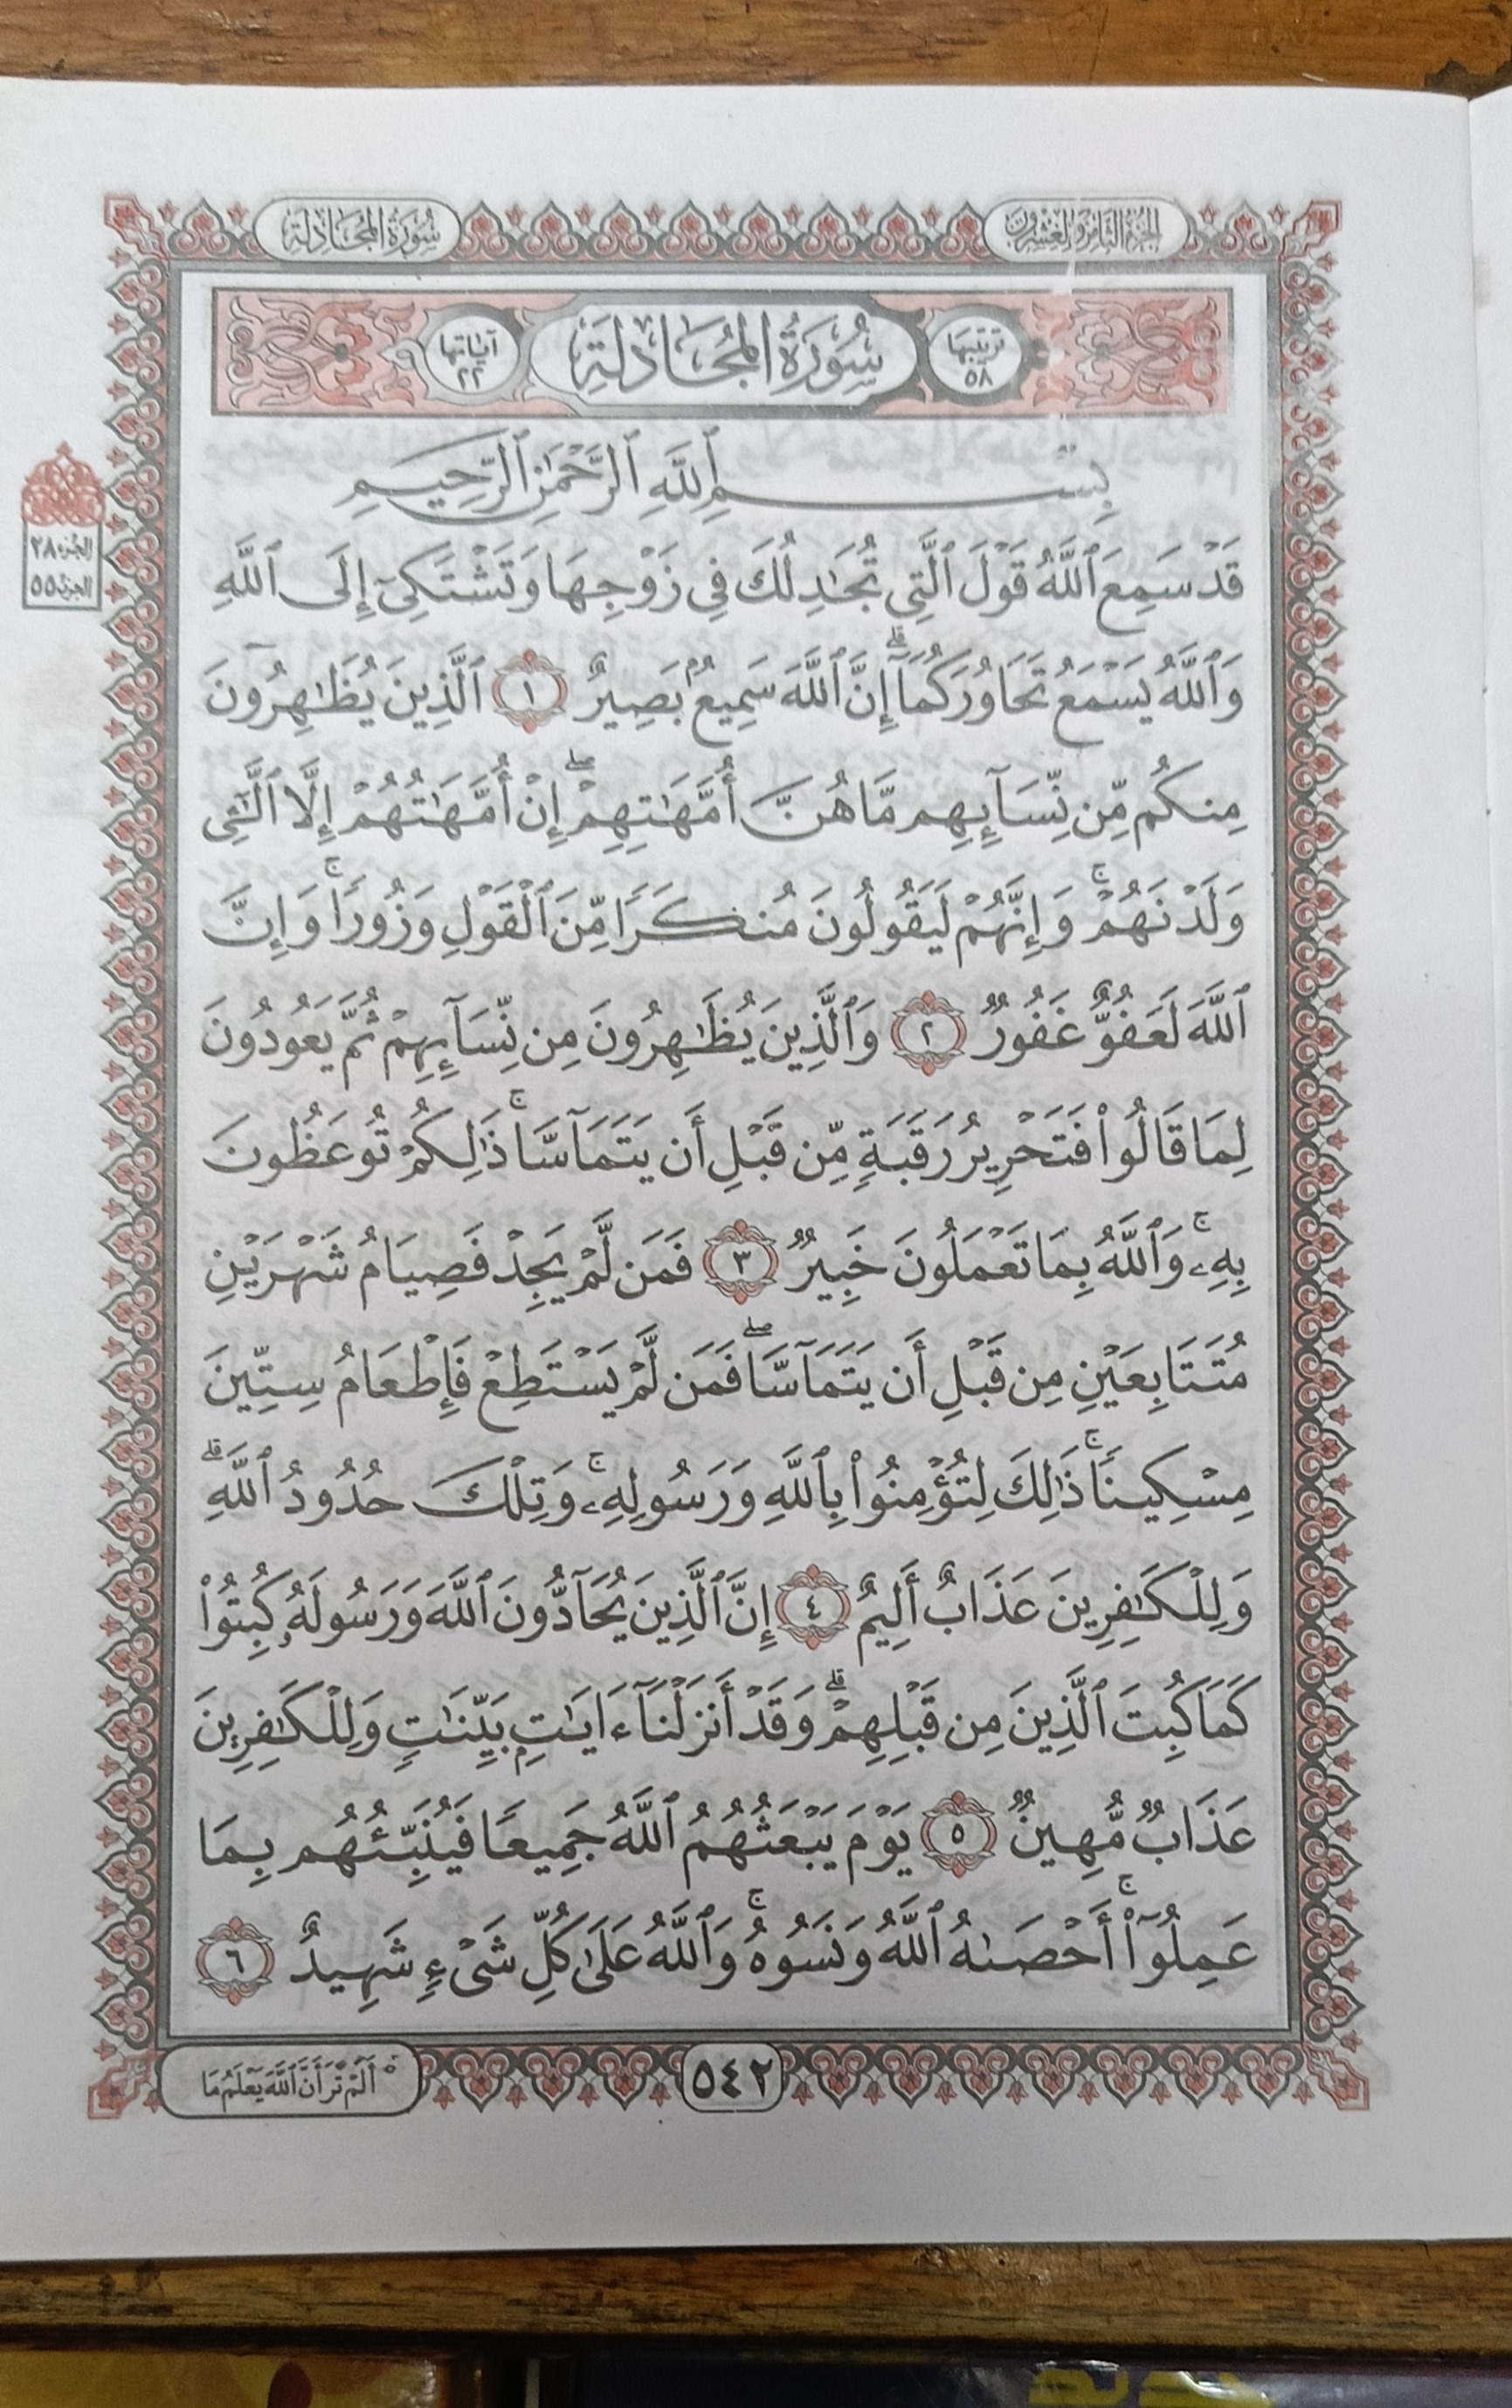 سُورَةُ المُجَادلَة
الجُزْءُ الثَّامِنُ وَالعِشْرُون
ترتيبها ٥٨
سُورَةُ المُجَادلَةِ
آياتها ٢٢
بِسْمِ ٱللَّهِ ٱلرَّحْمَٰنِ ٱلرَّحِيمِ
الجزء ٢٨
الحزب ٥٥
قَدْ سَمِعَ ٱللَّهُ قَوْلَ ٱلَّتِي تُجَٰدِلُكَ فِي زَوْجِهَا وَتَشْتَكِيٓ إِلَى ٱللَّهِ
وَٱللَّهُ يَسْمَعُ تَحَاوُرَكُمَآ ۗ إِنَّ ٱللَّهَ سَمِيعٌۢ بَصِيرٌ ١ ٱلَّذِينَ يُظَٰهِرُونَ
مِنكُم مِّن نِّسَآئِهِم مَّا هُنَّ أُمَّهَٰتِهِمْ ۖ إِنْ أُمَّهَٰتُهُمْ إِلَّا ٱلَّٰٓـِٔي
وَلَدْنَهُمْ ۚ وَإِنَّهُمْ لَيَقُولُونَ مُنكَرًا مِّنَ ٱلْقَوْلِ وَزُورًا ۚ وَإِنَّ
ٱللَّهَ لَعَفُوٌّ غَفُورٌ ٢ وَٱلَّذِينَ يُظَٰهِرُونَ مِن نِّسَآئِهِمْ ثُمَّ يَعُودُونَ
لِمَا قَالُوا۟ فَتَحْرِيرُ رَقَبَةٍ مِّن قَبْلِ أَن يَتَمَآسَّا ۚ ذَٰلِكُمْ تُوعَظُونَ
بِهِۦ ۚ وَٱللَّهُ بِمَا تَعْمَلُونَ خَبِيرٌ ٣ فَمَن لَّمْ يَجِدْ فَصِيَامُ شَهْرَيْنِ
مُتَتَابِعَيْنِ مِن قَبْلِ أَن يَتَمَآسَّا ۖ فَمَن لَّمْ يَسْتَطِعْ فَإِطْعَامُ سِتِّينَ
مِسْكِينًا ۚ ذَٰلِكَ لِتُؤْمِنُوا۟ بِٱللَّهِ وَرَسُولِهِۦ ۚ وَتِلْكَ حُدُودُ ٱللَّهِ ۗ
وَلِلْكَٰفِرِينَ عَذَابٌ أَلِيمٌ ٤ إِنَّ ٱلَّذِينَ يُحَآدُّونَ ٱللَّهَ وَرَسُولَهُۥ كُبِتُوا۟
كَمَا كُبِتَ ٱلَّذِينَ مِن قَبْلِهِمْ ۗ وَقَدْ أَنزَلْنَآ ءَايَٰتٍۭ بَيِّنَٰتٍ وَلِلْكَٰفِرِينَ
عَذَابٌ مُّهِينٌ ٥ يَوْمَ يَبْعَثُهُمُ ٱللَّهُ جَمِيعًا فَيُنَبِّئُهُم بِمَا
عَمِلُوٓا۟ ۚ أَحْصَىٰهُ ٱللَّهُ وَنَسُوهُ ۚ وَٱللَّهُ عَلَىٰ كُلِّ شَيْءٍ شَهِيدٌ ٦
أَلَمْ تَرَ أَنَّ ٱللَّهَ يَعْلَمُ مَا
٥٤٢